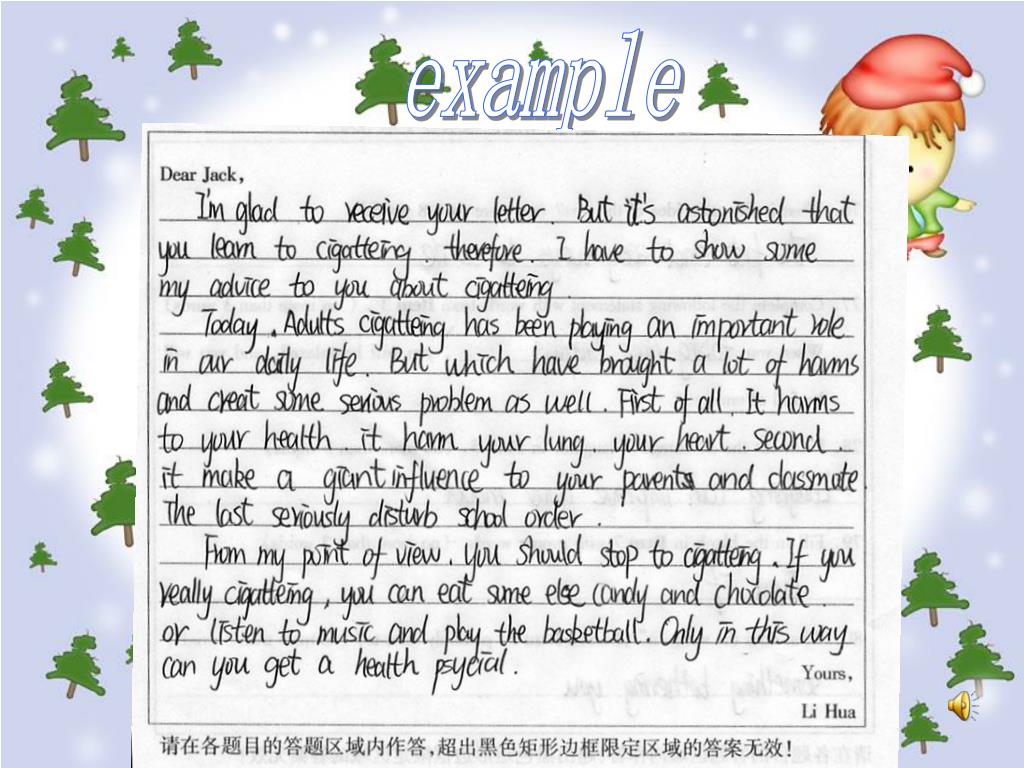 example
Dear Jack,
I'm glad to receive your letter. But it's astonished that
you learn to cigatteing therefore. I have to show some
my advice to you about cigatteing
Today. Adults cigatteing has been playing an important role
in our daily life. But which have brought a lot of harms
and creat some serious problem as well. First of all. It harms
to your health it harm your lung your heart. second.
it make a giant influence to your parents and classmate.
The last seriously disturb school order.
From my point of view. you should stop to cigatteng. If you
really cigatteing, you can eat some else candy and chocolate.
or listen to music and play the basketball. Only in this way
can you get a health psycial.
Yours,
Li Hua
请在各题目的答题区域内作答,超出黑色矩形边框限定区域的答案无效!